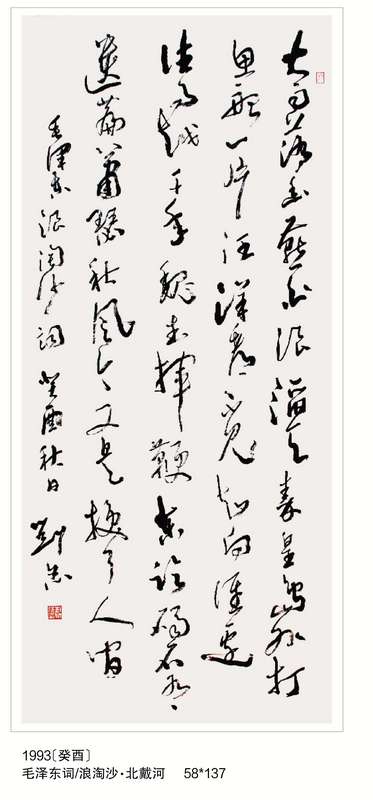 大雨落幽燕白浪滔天秦皇島外打
魚船一片汪洋都不見知向誰邊
往事越千年魏武揮鞭東臨碣石有
遺篇蕭瑟秋風今又是換了人間
毛澤東浪淘沙詞 癸酉秋日 劉
1993〔癸酉〕
毛泽东词/浪淘沙·北戴河 58*137